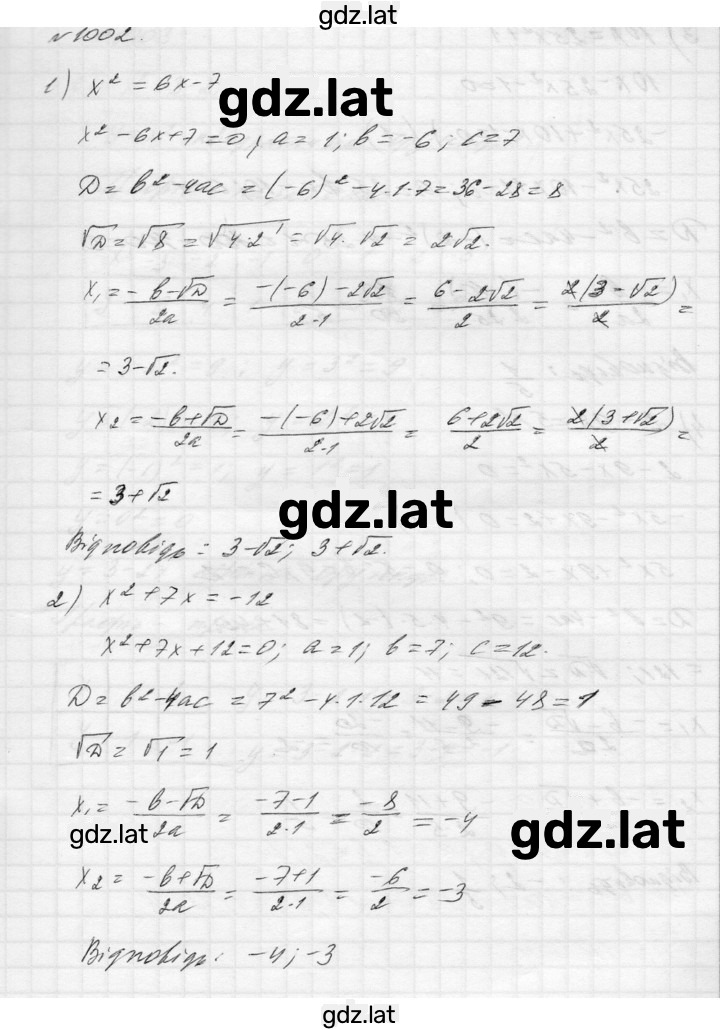 gdz.lat
№1002.
1) x² = 6x-7
gdz.lat
x² - 6x + 7 = 0; a = 1; b = -6; c = 7
D = b² - 4ac = (-6)² - 4·1·7 = 36 - 28 = 8
√D = √8 = √4·2 = √4·√2 = 2√2.
x₁ = (-b-√D)/2a = (-(-6)-2√2)/2·1 = (6-2√2)/2 = 2(3-√2)/2 =
= 3-√2.
x₂ = (-b+√D)/2a = (-(-6)+2√2)/2·1 = (6+2√2)/2 = 2(3+√2)/2 =
= 3+√2
gdz.lat
Відповідь: 3-√2; 3+√2.
2) x² + 7x = -12
x² + 7x + 12 = 0; a = 1; b = 7; c = 12.
D = b² - 4ac = 7² - 4·1·12 = 49 - 48 = 1
√D = √1 = 1
x₁ = (-b-√D)/2a = (-7-1)/2·1 = -8/2 = -4
gdz.lat
gdz.lat
x₂ = (-b+√D)/2a = (-7+1)/2·1 = -6/2 = -3
Відповідь: -4; -3
gdz.lat